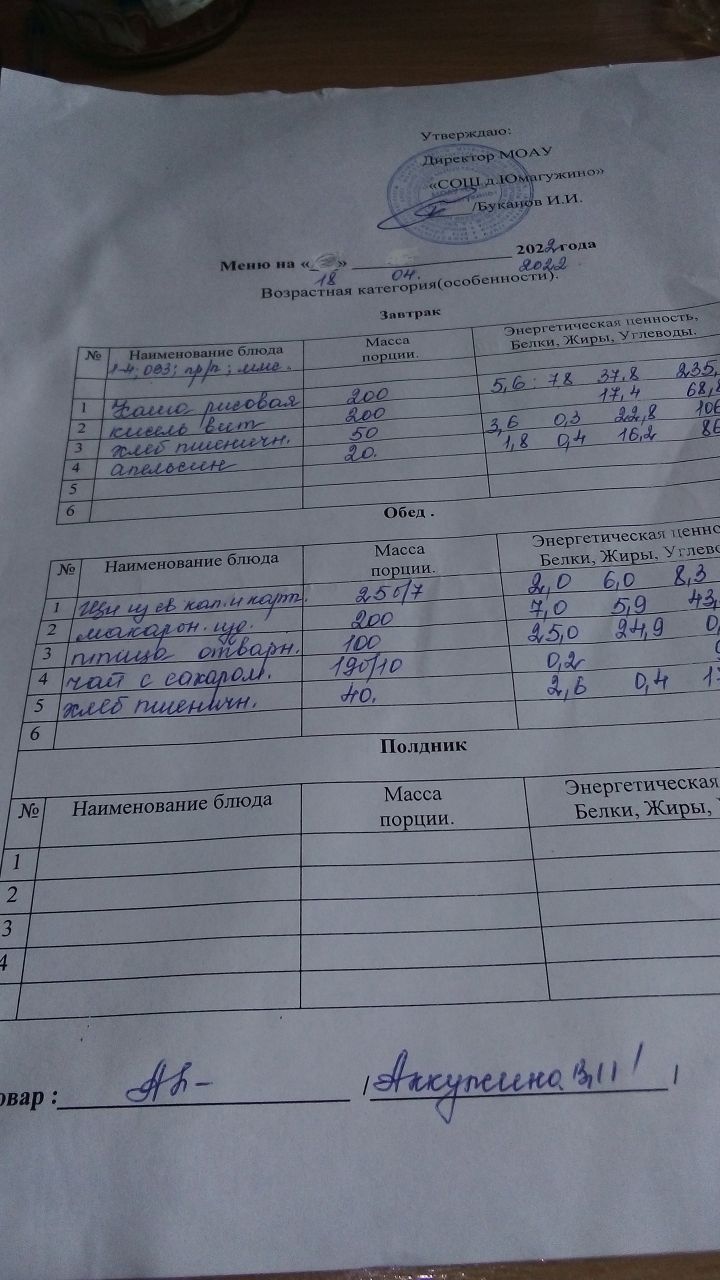 Утверждаю:
Директор МОАУ
«СОШ д.Юмагужино»
/Буканов И.И.
Меню на « » 2022 года
18 04. 2022
Возрастная категория(особенности).
Завтрак
№ Наименование блюда Масса порции. Энергетическая ценность, Белки, Жиры, Углеводы.
1-4; ОВЗ; пр/р; ммс.
1 Каша рисовая 200 5,6 : 78 37,8 235,
2 кисель вит 200 17,4 68,4
3 хлеб пшеничн. 50 3,6 0,3 22,8 106
4 апельсин 20. 1,8 0,4 16,2 86
5
6
Обед .
№ Наименование блюда Масса порции. Энергетическая ценно Белки, Жиры, Углево
1 Щи из св кап. и карт. 250/7 2,0 6,0 8,3
2 макарон. изд. 200 7,0 5,9 43,
3 птица отварн. 100 25,0 24,9 0,
4 чай с сахаром. 190/10 0,2
5 хлеб пшеничн. 40. 2,6 0,4 17
6
Полдник
№ Наименование блюда Масса порции. Энергетическая Белки, Жиры,
1
2
3
4
овар : / Аккужина /